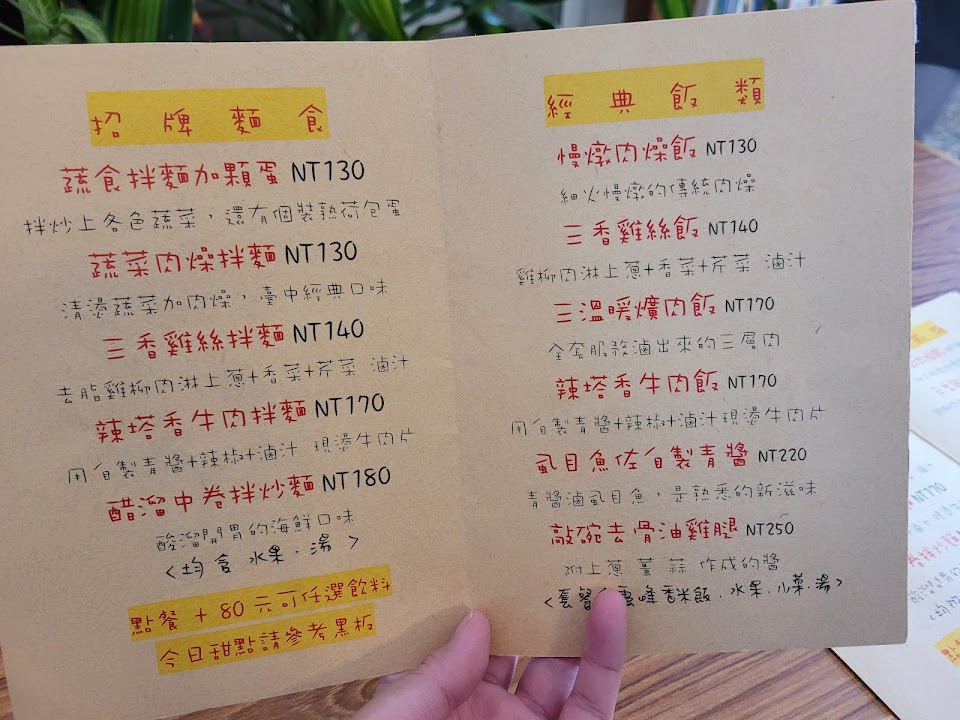 招牌麵食
蔬食拌麵加顆蛋 NT130
拌炒上各色蔬菜，還有個裝熟荷包蛋
蔬菜肉燥拌麵 NT130
清燙蔬菜加肉燥，臺中經典口味
三香雞絲拌麵 NT140
去脂雞柳肉淋上蔥+香菜+芹菜 滷汁
辣塔香牛肉拌麵 NT170
用自製青醬+辣椒+滷汁 現燙牛肉片
醋溜中卷拌炒麵 NT180
酸溜開胃的海鮮口味
<均含 水果．湯>
點餐 + 80 元可任選飲料
今日甜點請參考黑板
經典飯類
慢燉肉燥飯 NT130
細火慢燉的傳統肉燥
三香雞絲飯 NT140
雞柳肉淋上蔥+香菜+芹菜 滷汁
三溫暖爌肉飯 NT170
全套服務滷出來的三層肉
辣塔香牛肉飯 NT170
用自製青醬+辣椒+滷汁現燙牛肉片
虱目魚佐自製青醬 NT220
青醬滷虱目魚，是熟悉的新滋味
敲碗去骨油雞腿 NT250
附上蔥 薑 蒜 作成的醬
<套餐 峰香米飯．水果．小菜．湯>